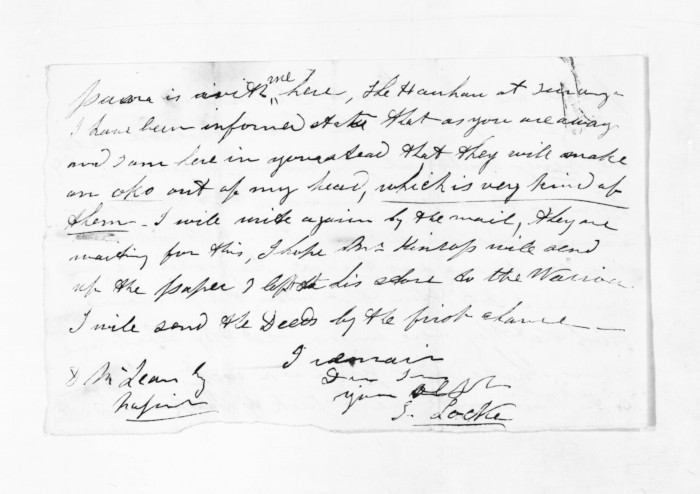 is with me here, The Hauhau at
I have been informed state that as you are away
and I am here in your stead that they will make
an oko out of my head, which is very kind of
them - I will write again by the mail, they are
waiting for this, I hope Mr will send
up the paper I left at his store to the Wairoa
I will send the Deeds by the first chance -
I remain
Dear Sir
your
S. Locke
D McLean Esq
Napier